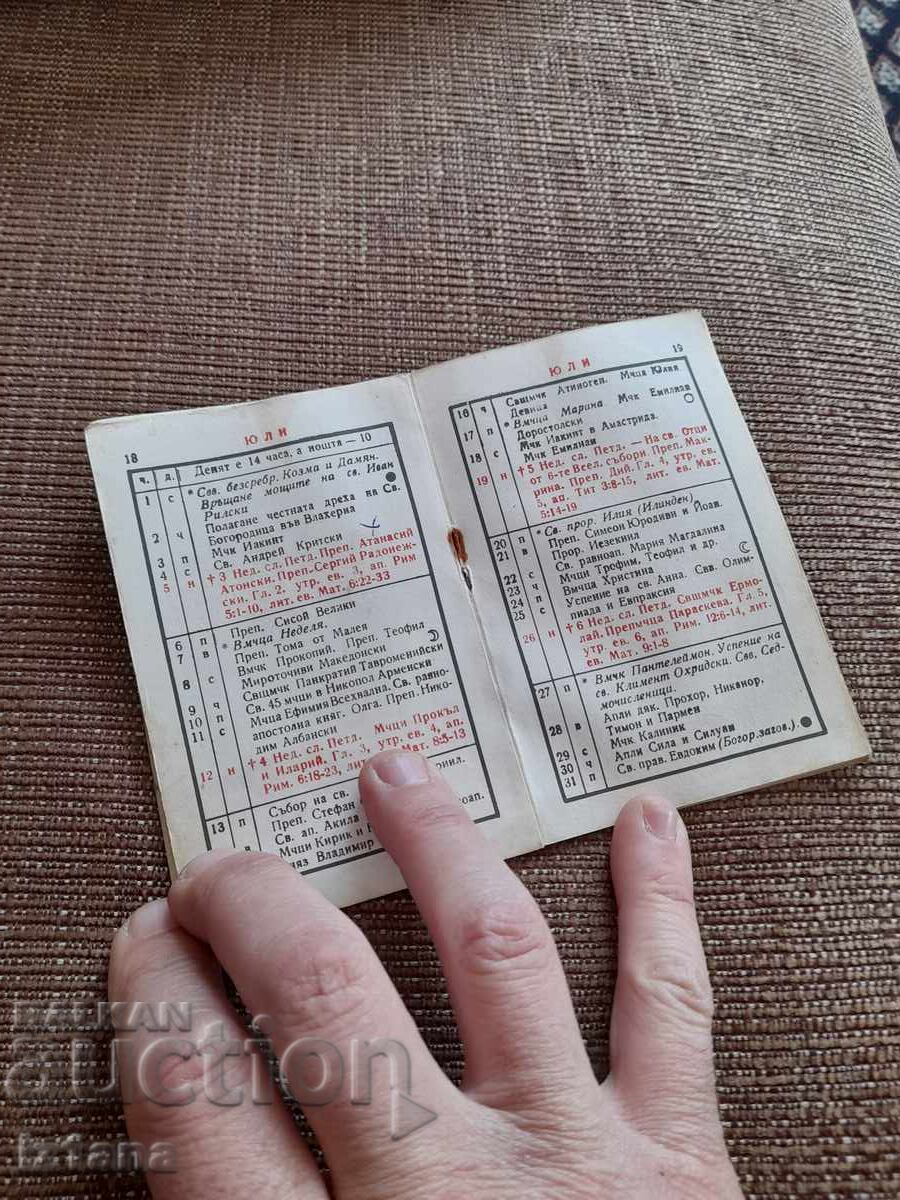 18
ЮЛИ
ч. д. Денят е 14 часа, а нощта — 10
1 с * Свв. безсребр. Козма и Дамян.
Връщане мощите на св. Иван
Рилски
2 ч Полагане честната дреха на Св.
Богородица във Влахерна
3 п Мчк Иакинт
4 с Св. Андрей Критски
5 н † 3 Нед. сл. Петд. Преп. Атанасий
Атонски. Преп. Сергий Радонеж-
ски. Гл. 2, утр. ев. 3, ап. Рим
5:1-10, лит. ев. Мат. 6:22-33
6 п Преп. Сисой Велики
7 в * Вмчца Неделя.
Преп. Тома от Малея
8 с Вмчк Прокопий. Преп. Теофил
Мироточиви Македонски
9 ч Свщмчк Панкратий Тавроменийски
10 п Св. 45 мчци в Никопол Арменски
11 с Мчца Ефимия Всехвална. Св. равно-
апостолна княг. Олга. Преп. Нико-
дим Албански
12 н † 4 Нед. сл. Петд. Мчци Прокъл
и Иларий. Гл. 3, утр. ев. 4, ап.
Рим. 6:18-23, лит. Мат. 8:5-13
13 п Събор на св.
в Преп. Стефан
Св. ап. Акила
Мчци Кирик и
Владимир
19
ЮЛИ
16 ч Свщмчк Атиноген. Мчца Юлия
Девица
17 п * Вмчца Марина Мчк Емилиан
Доростолски
18 с Мчк Иакинт в Амастрида.
Мчк Емилиан
19 н † 5 Нед. сл. Петд. — На св. Отци
от 6-те Всел. събори. Преп. Мак-
рина. Преп. Дий. Гл. 4, утр. ев.
5, ап. Тит 3:8-15, лит. ев. Мат.
5:14-19
20 п * Св. прор. Илия (Илинден)
21 в Преп. Симеон Юродиви и Йоан.
Прор. Иезекиил
22 с Св. равноап. Мария Магдалина
23 ч Мчци Трофим, Теофил и др.
24 п Вмчца Христина
25 с Успение на св. Анна. Свв. Олим-
пиада и Евпраксия
26 н † 6 Нед. сл. Петд. Свщмчк Ермо-
лай. Препмчца Параскева. Гл. 5,
утр. ев. 6, ап. Рим. 12:6-14, лит.
ев. Мат. 9:1-8
27 п * Вмчк Пантелеймон. Успение на
св. Климент Охридски. Свв. Сед-
мочисленици.
28 в Апли дяк. Прохор, Никанор,
Тимон и Пармен
29 с Мчк Калиник
30 ч Апли Сила и Силуан
31 п Св. прав. Евдоким (Богор. загов.)
BALKAN
auction
izfana